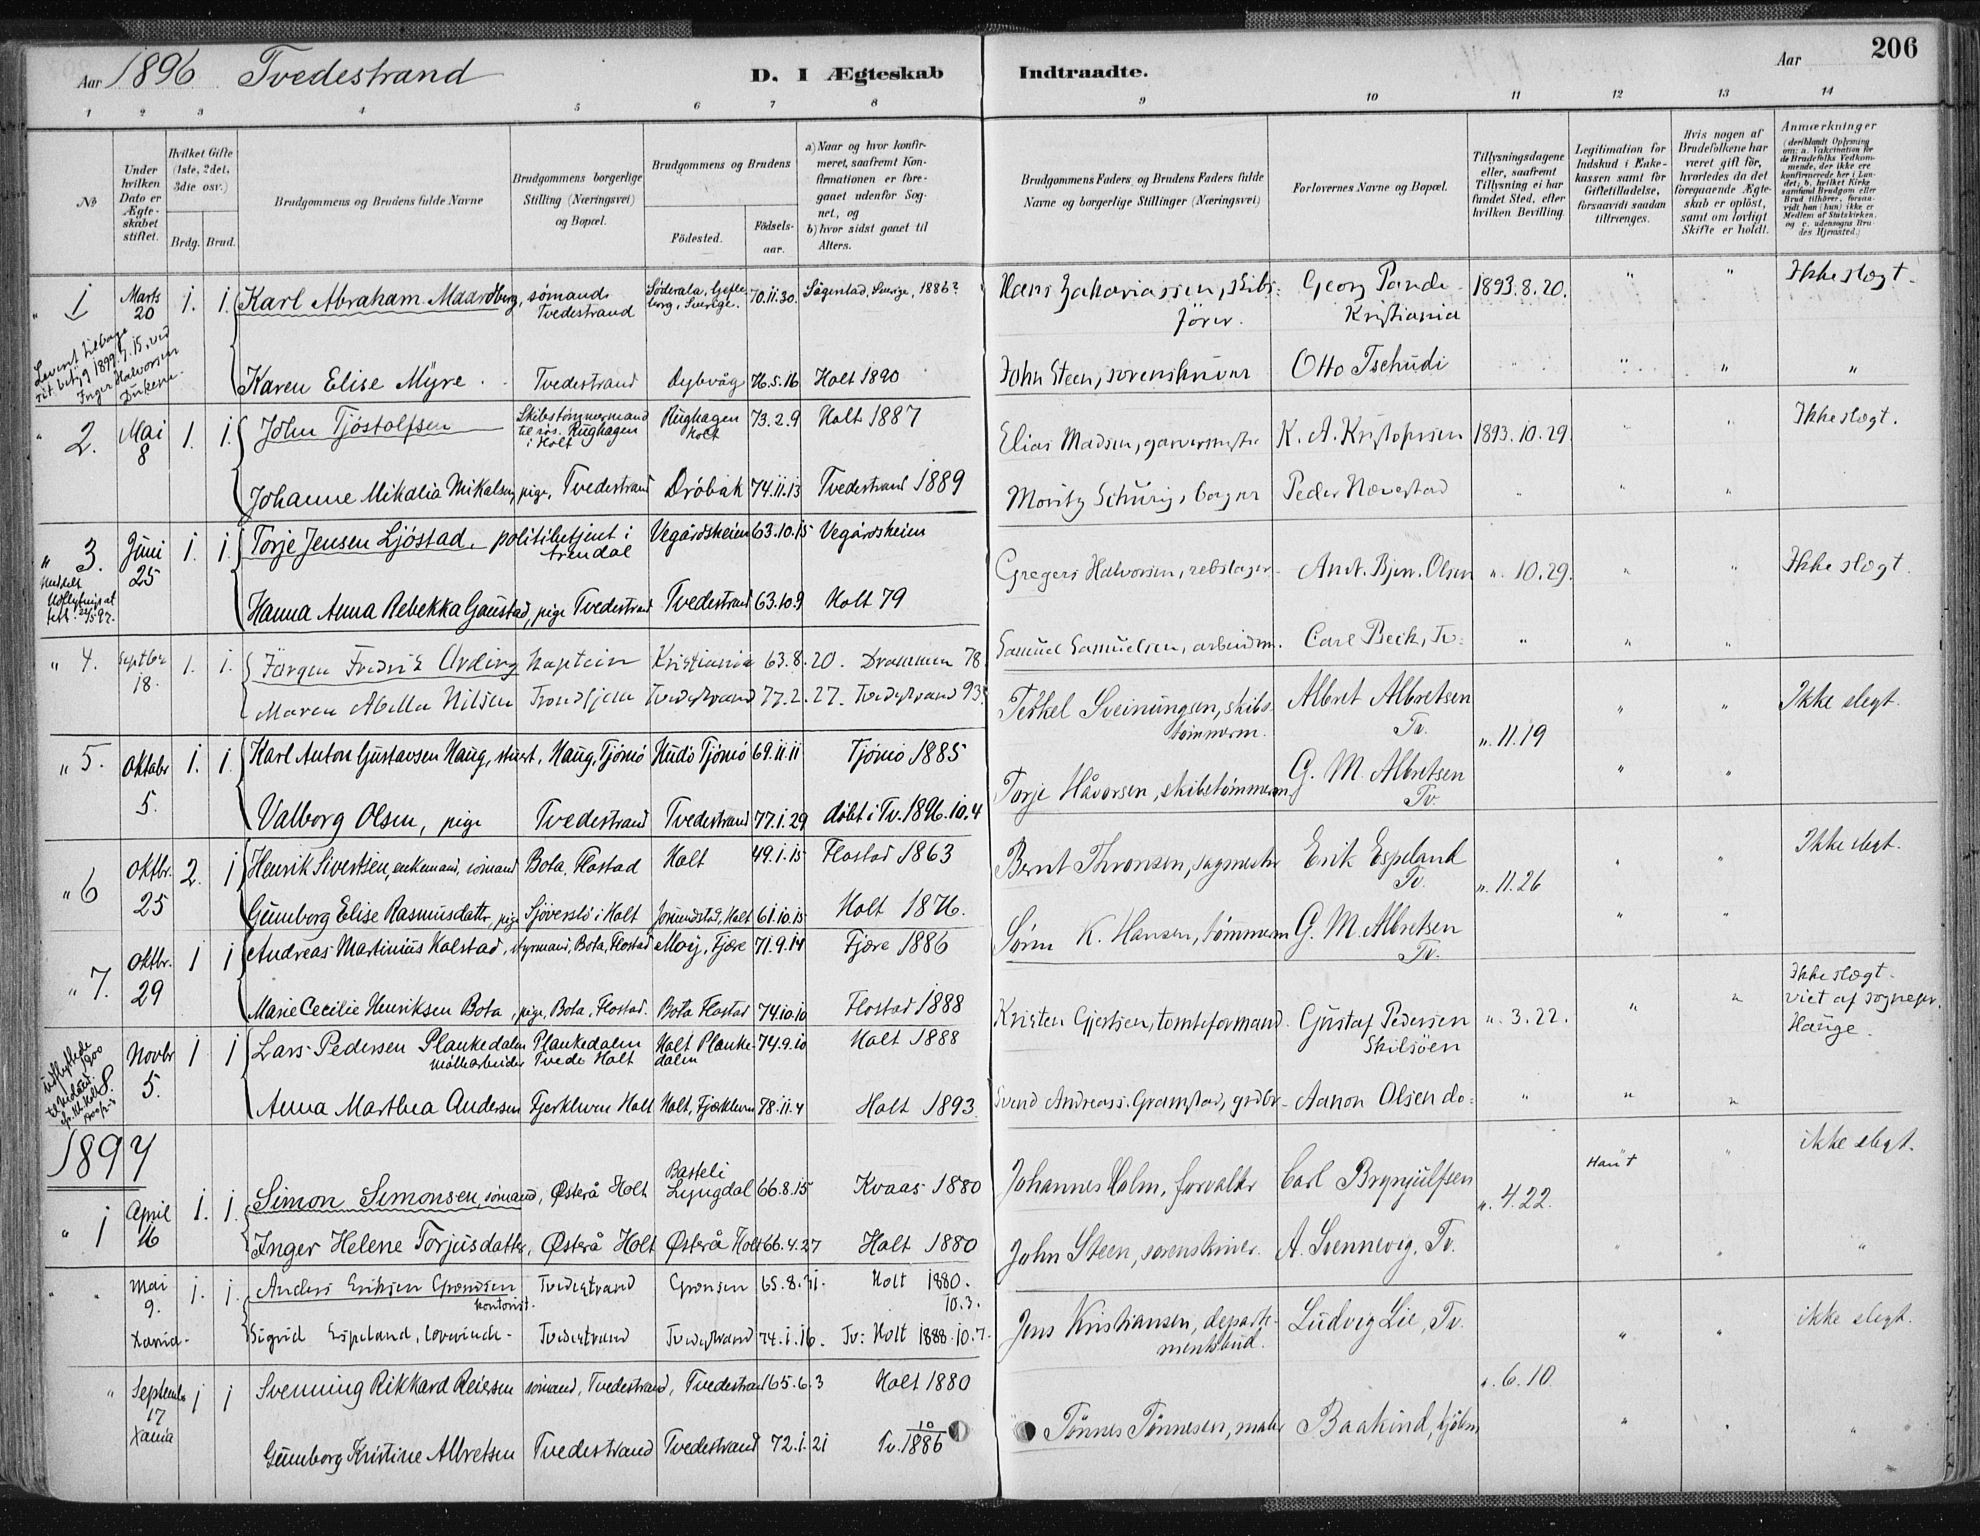 Aar 1896 Tvedestrand
D. I Ægteskab Indtraadte.
Aar
206
1 2 3 4 5 6 7 8 9 10 11 12 13 14
No
Under hvilken Dato er Ægteskabet stiftet.
Hvilket Gifte (1ste, 2det, 3die osv.)
Brdg. Brud.
Brudgommens og Brudens fulde Navne
Brudgommens borgerlige Stilling (Næringsvei) og Bopæl.
Brudgommens og Brudens
Fødested.
Fødselsaar.
a) Naar og hvor konfirmeret, saafremt Konfirmationen er foregaaet udenfor Sognet, og
b) hvor sidst gaaet til Alters.
Brudgommens Faders og Brudens Faders fulde Navne og borgerlige Stillinger (Næringsvei)
Forlovernes Navne og Bopæl.
Tillysningsdagene eller, saafremt Tillysning ei har fundet Sted, efter hvilken Bevilling.
Legitimation for Indskud i Enkekassen samt for Giftetilladelse, forsaavidt saadan tiltrænges.
Hvis nogen af Brudefolkene har været gift før, hvorledes da det foregaaende Ægteskab er opløst, samt om lovligt Skifte er holdt.
Anmærkninger (deriblandt Oplysning om: a. Vakcination for de Brudefolks Vedkommende, der ikke ere konfirmerede her i Landet; b. hvilket Kirkesamfund Brudgom eller Brud tilhører, forsaavidt han (hun) ikke er Medlem af Statskirken, og c. udensogns Brudes Hjemsted.)
" 1 Marts 20 1. 1. Karl Abraham Maardberg, sømand Tvedestrand Söderala, Gefleborg, Sverige. 70.11.30. Sögerstad, Sverige, 1886?
Karen Elise Myre. Tvedestrand Dybvåg 76.5.16 Holt 1890
" 2. Mai 8 1. 1. John Tjöstolfsen Skibstømmermand Rughagen i Holt Rughagen Holt 73.2.9 Holt 1887
Johanne Mikalia Mikalsen, pige, Tvedestrand Dröbak 74.11.13 Tvedestrand 1889
" 3. Juni 25 1. 1. Torje Jensen Ljöstad, politibetjent i Arendal Vegårdsheien 63.10.15 Vegårdsheien
Hanna Anna Rebekka Gaustad, pige Tvedestrand Tvedestrand 63.10.9 Holt 79
" 4. Septbr 18. 1. 1. Jörgen Fredrik Urding kaptein Kristiania 63.8.20. Drammen 78.
Maren Abella Nilsen Trondhjem Tvedestrand 77.2.27. Tvedestrand 93.
" 5. Oktobr 5. 1. 1. Karl Anton Gustavsen Haug, stuert, Haug, Tjömö Hudö Tjömö 69.11.11 Tjömö 1885
Valborg Olsen, pige Tvedestrand Tvedestrand 77.1.29 döbt i Tv. 1896.10.4
" 6 Oktbr. 25 2. 1 Henrik Sivertsen, enkemand, sömand Bota, Flostad Holt 49.1.15 Flostad 1863
Gunborg Elise Rasmusdatter, pige Sjöverstö i Holt Jorundstad, Holt 61.10.15 Holt 1876.
" 7. Oktbr. 29 1 1 Andreas Martinius Kalstad, styrmand, Bota, Flostad Moij, Fjære 71.9.14 Fjære 1886
Marie Cecilie Henriksen Bota, pige, Bota, Flostad. Bota Flostad 74.10.10 Flostad 1888
8. Novbr 5. 1 1 Lars Pedersen Plankedalen Möllearbeider Plankedalen Tvede Holt Holt Plankedalen 74.9.10 Holt 1888
Anna Marthea Andersen Fjerkleven Holt Holt, Fjærkleven 78.11.4 Holt 1893.
1897
" 1 April 16 1. 1. Simon Simonsen, sömand, Østerå Holt Basteli Lyngdal 66.8.15 Kvaas 1880
Inger Helene Torjusdatter, Østerå Holt Østerå Holt 66.4.27 Holt 1880
" " Mai 9. Xania. 1. 1. Anders Eriksen Grønsen kontorist. Tvedestrand Grönsen 65.8.31. Holt 1880. 10.3.
Sigrid Espeland, lovevinde. Tvedestrand Tvedestrand 74.1.16. Tv: Holt 1888.10.7.
" Septembr 17 Xania 1 1 Svenning Rikkard Reiersen sömand, Tvedestrand, Tvedestrand 65.6.3 Holt 1880
Gunborg Kristine Albretsen Tvedestrand Tvedestrand 72.1.21 Tv. 10/1886
Hans Zakariassen, skibsförer. Georg Pande Kristiania 1893.8.20. " " Ikke slegt.
John Steen, sorenskriver Otto Tschudi " " "
Elias Madsen, garvermester K. A. Kristophersen 1893.10.29. " " Ikke slegt.
Moritz Schurig, borger Peder Næveştad " " "
Gregers Halvorsen, rebslager. Andr. Bjen. Olsen ". 10.29. " " Ikke slegt.
Samuel Samuelsen, arbeidm. Carl Beck, Tv. " " "
Terkel Sveinungsen, skibstømmerm. Albret Albretsen Tv. ". 11.19 " " Ikke slegt.
Torje Håvorsen, skibstømmerm G. M. Albretsen Tv. " "
Bernt Thronsen, sagmester Erik Espeland Tv. ". 11.26 " " Ikke slegt.
Søren K. Hansen, tømmerm G. M. Albretsen Tv. " "
Kristen Gjertsen, tomteformand. Gustaf Pedersen Skilsöen ". 3.22. " " Ikke slægt. viet af sognepr. Hauge.
Svend Andreass. Gramstad, grdbr. Aanon Olsen do. " " "
Johannes Holm, forvalter Carl Brynjulfsen ". 4.22. " ikke slegt.
John Steen, sorenskriver. A. Svennevig, Tv. " " "
Jens Kristiansen, departementsbud. Ludvig Lie, Tv. ". 6.10 " " ikke slegt.
Tønnes Tønnesen, maler Baakind, " " "